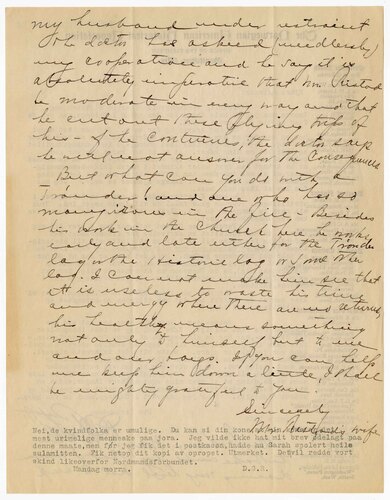 my husband under restraint
The doctor has asked (needlessly)
my cooperation and he says it is
absolutely imperative that Mr. Rustad
be moderate in every way and that
he cut out these flying trips of
his - if he continues, the doctor says
he will not answer for the consequences
But what can you do with a
Trönder! and one who has so
many irons in the fire - Besides
his work in the Church here he works
early and late either for the Trönder
lag or the Historic lag or some other
lag. I can not make him see that
it is useless to waste his time
and energy where there are no returns,
his health means something
not only to himself but to me
and our boys. If you can help
me keep him down a little, I shall
be mighty grateful to you
Sincerely
Mrs. Rustad's wife
Nei, de kvindfolka er umulige. Du kan si din kone
mest urimelige menneske paa jora. Jeg vilde ikke hat mit brev ødelagt paa
denne maate, men før jeg fik det i postkassa, hadde au Sarah spolert heile
sulamitten. Fik netop dit kopi av opropet. Utmerket. Det vil redde vort
skind likeoverfor Nordmandsforbundet.
Mandag morra.
D.G.R.